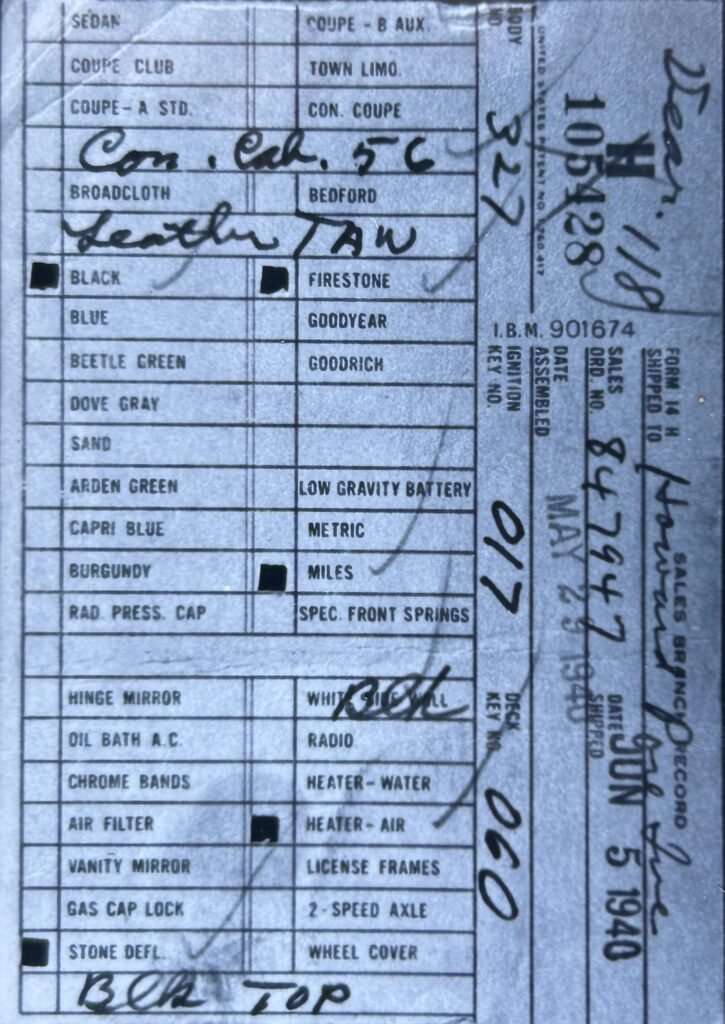 SEDAN COUPE - B AUX.
COUPE CLUB TOWN LIMO.
COUPE - A STD. CON. COUPE
Con. Cab. 56
BROADCLOTH BEDFORD
Leather TAN
BLACK FIRESTONE
BLUE GOODYEAR
BEETLE GREEN GOODRICH
DOVE GRAY
SAND
ARDEN GREEN LOW GRAVITY BATTERY
CAPRI BLUE METRIC
BURGUNDY MILES
RAD. PRESS. CAP SPEC. FRONT SPRINGS
HINGE MIRROR WHITE SIDE WALL
Blk
OIL BATH A.C. RADIO
CHROME BANDS HEATER - WATER
AIR FILTER HEATER - AIR
VANITY MIRROR LICENSE FRAMES
GAS CAP LOCK 2 - SPEED AXLE
STONE DEFL. WHEEL COVER
Blk TOP
SALES BRANCH RECORD
FORM 14 H
SHIPPED TO Howard
SALES ORD. NO. 847947
DATE SHIPPED JUN 5 1940
DATE ASSEMBLED MAY 29 1940
H
105428
118
UNITED STATES PATENT NO.
I.B.M. 901674
BODY NO 327
IGNITION KEY NO. 017
DECK KEY NO. 060